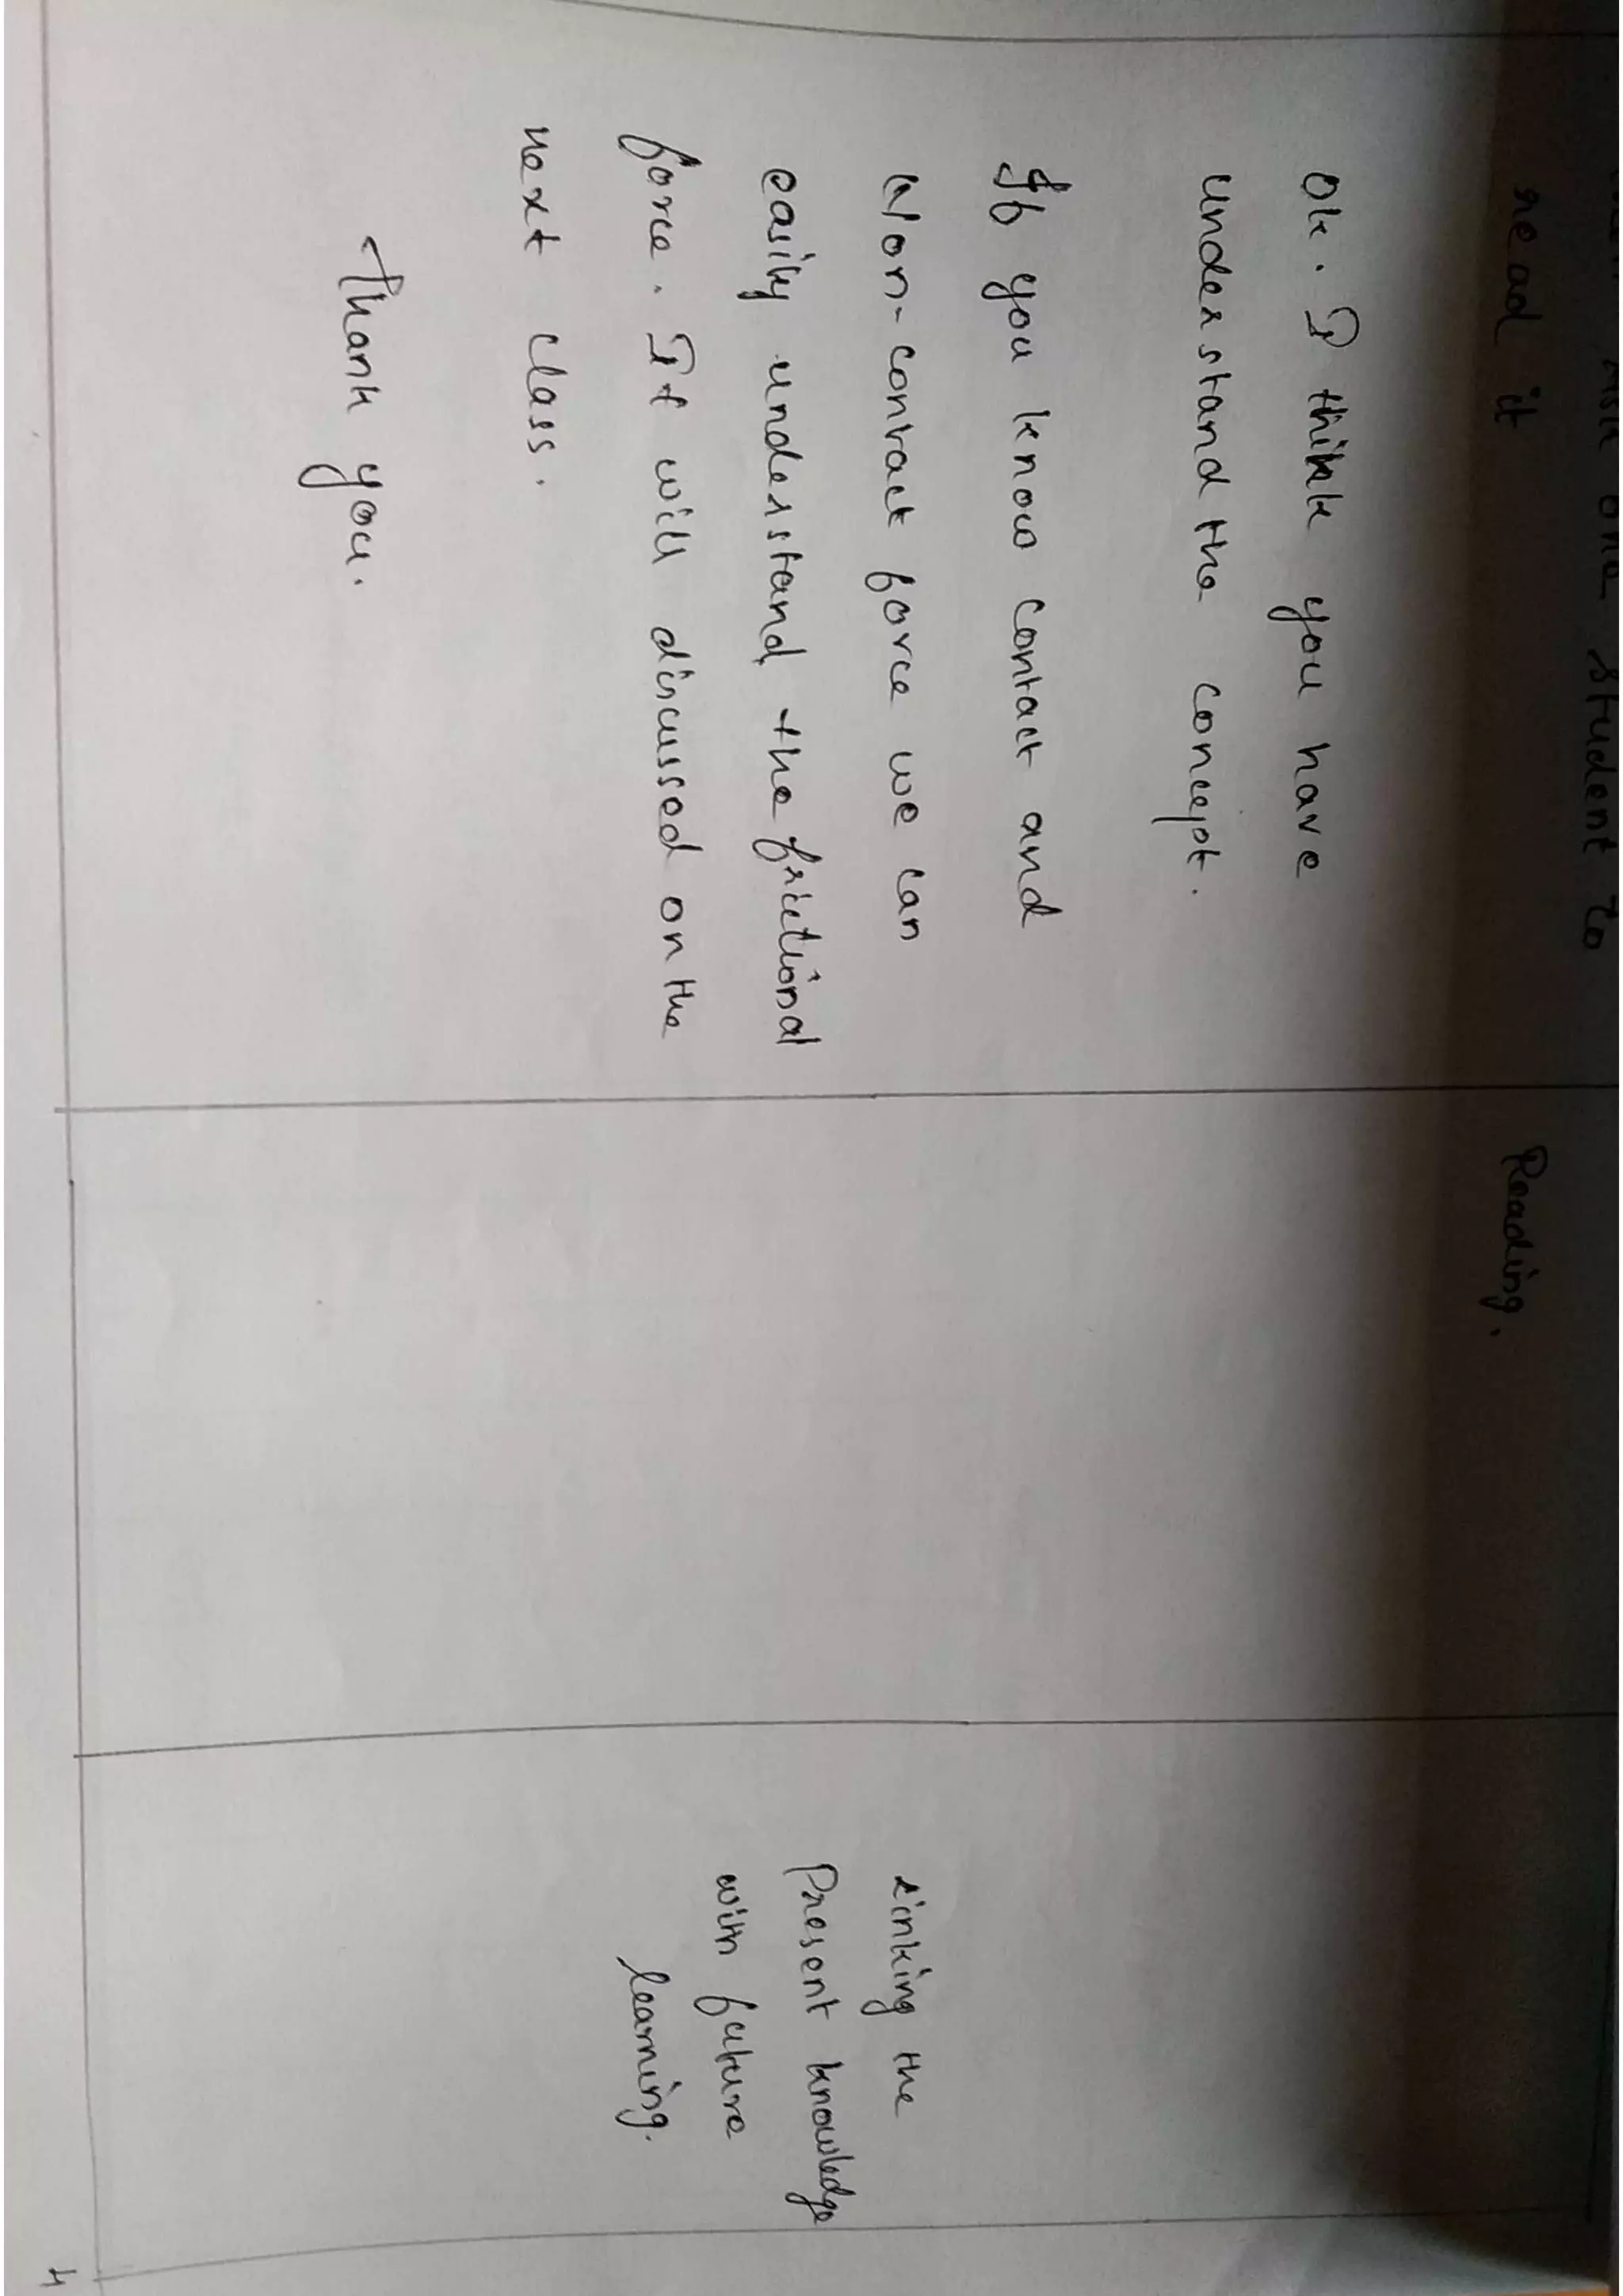 one student to
read it
Reading.
Ok. I think you have
understand the concept.
If you know contact and
Non-contact force we can
easily understand the frictional
force. It will discussed on the
next class.
Thank you.
Linking the
Present knowledge
with future
learning.
4